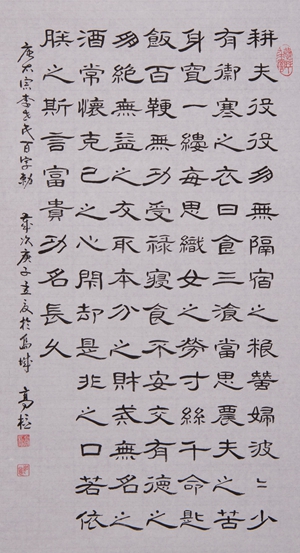 耕夫役役多無隔宿之粮蠶婦波〻少
有御寒之衣日食三飧當思農夫之苦
身穿一縷每思織女之勞寸絲千命匙
飯百鞭無功受禄寢食不安交有德之
朋絕無益之友取本分之財戒無名之
酒常懷克己之心閑却是非之口若依
朕之斯言富貴功名長久
唐太宗李世民百字勅 歲次庚子立夏於 高